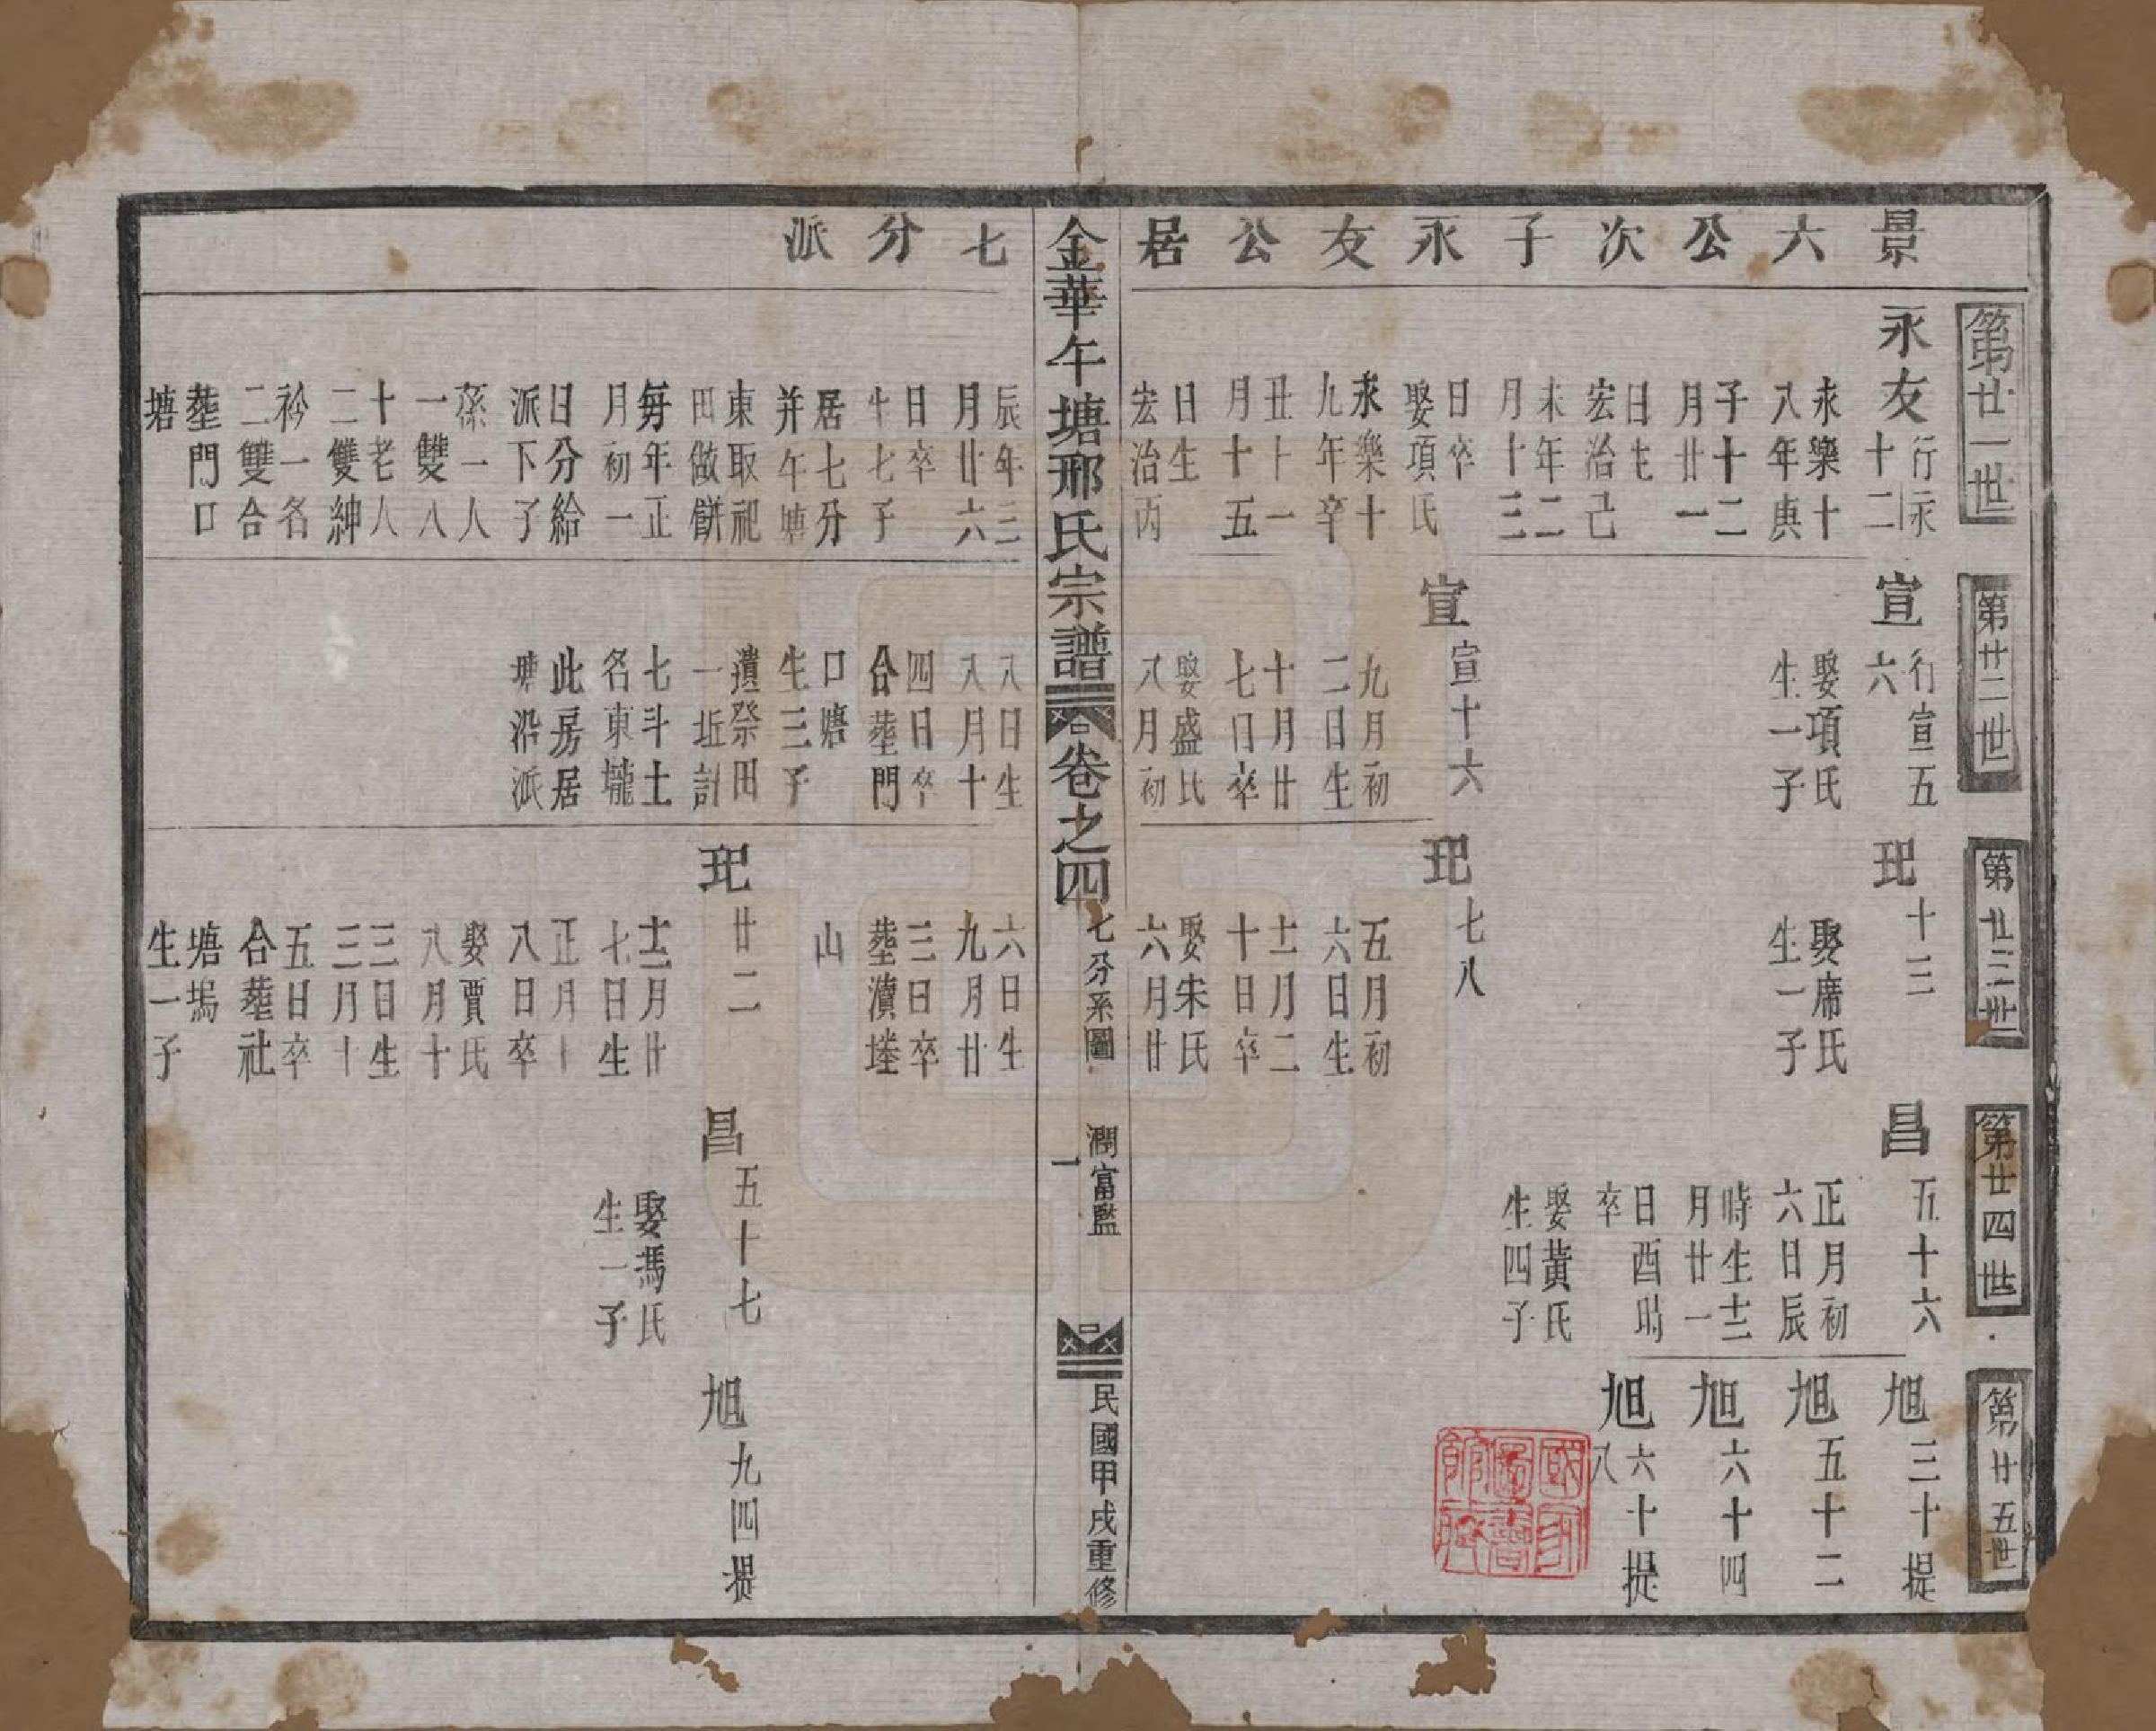 景六公次子永友公居七分派
第廿一世
永友
行永十二
永樂十八年庚
子十二月廿一
日生宏治己
未年二月十三
日卒娶項氏
永樂十九年辛
丑十一月十五
日生宏治丙
辰年三月廿六
日卒生七子
居七分并午塘
東取祀田做餅
每年正月初一
日分給派下了
孫一人一雙八
十老人二雙紳
衿一名二雙合
塟門口塘
第廿二世
宣
行宣五六
娶項氏生一子
宣
宣十六
九月初二日生
十月廿七日卒
娶盛氏八月初
八日生八月十
四日卒合塟門
口塘生三子
遺祭田一坵計
七斗土名東壠
此房居塘沿派
第廿三世
玘
十三
娶席氏生一子
玘
七八
五月初六日生
十二月二十日卒
娶朱氏六月廿
六日生九月廿
三日卒塟瀆塔
山
玘
廿二
十二月廿七日生
正月十八日卒
娶賈氏八月十
三日生三月十
五日卒合塟社
塘塢生一子
第廿四世
昌
五十六
正月初六日辰
時生十二月廿一
日酉時卒
娶黃氏生四子
昌
五十七
娶馮氏生一子
第廿五世
旭
三十提
旭
五十二
旭
六十四
旭
六十提八
旭
九四提
金華午塘邢氏宗譜
卷之四
七分系圖
一
潤富監
民國甲戌重修
國家圖書館藏